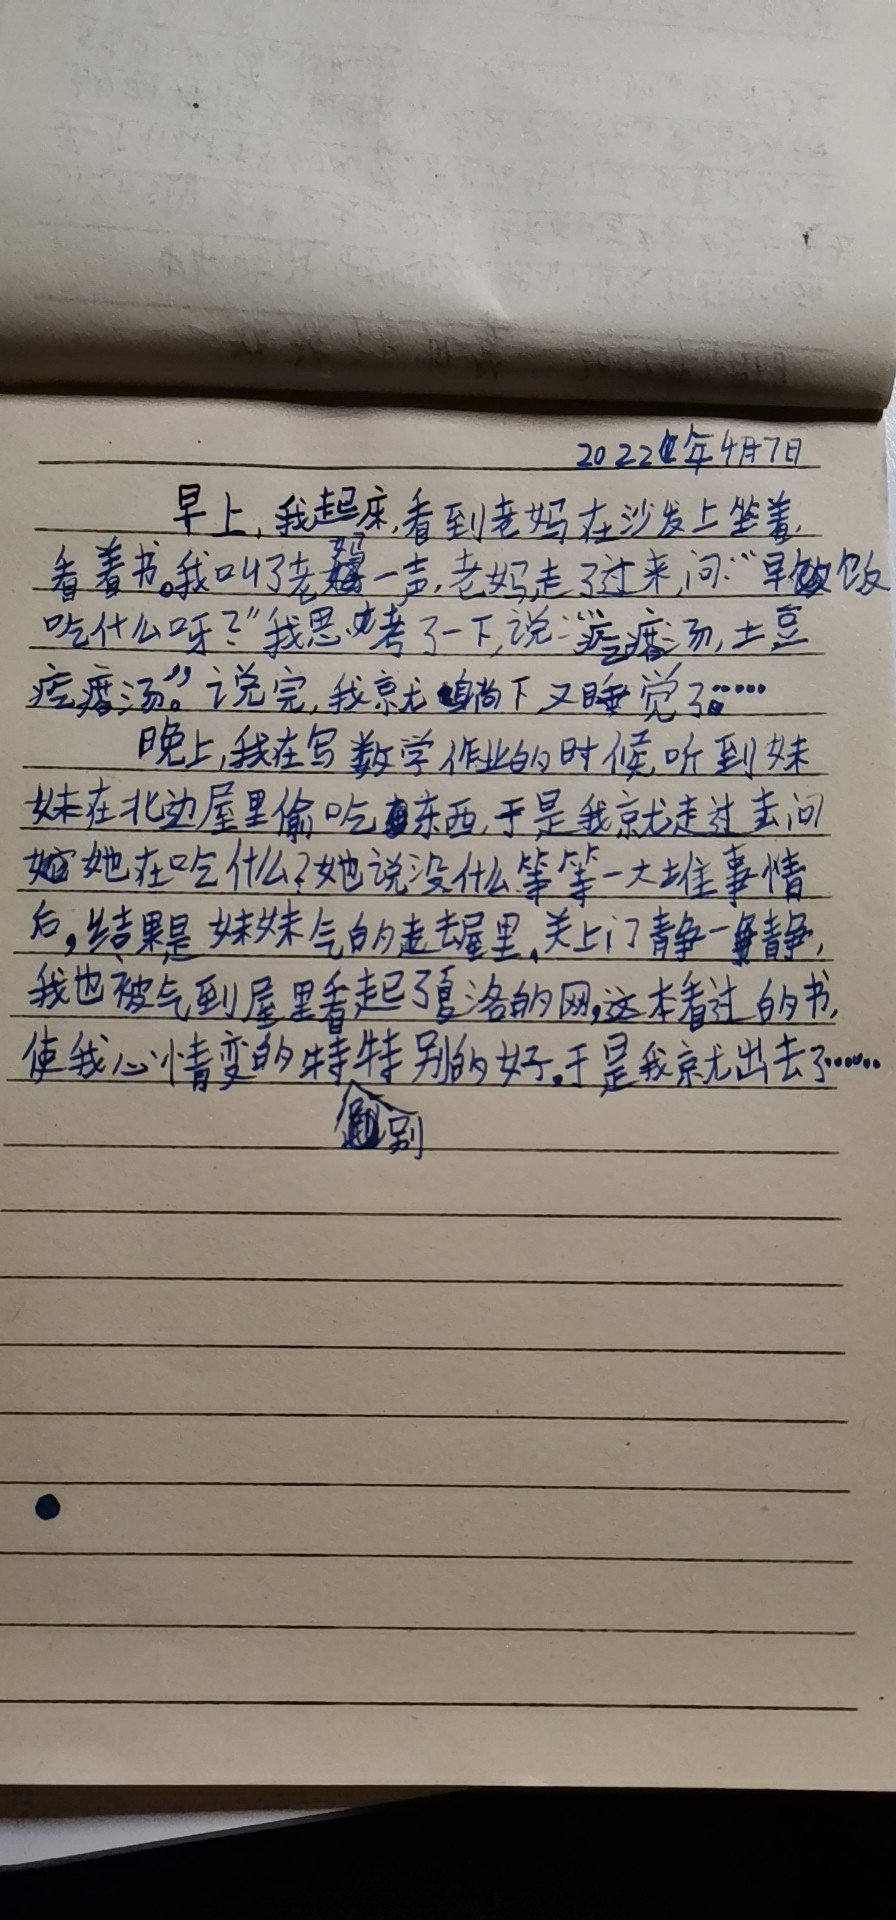 2022年4月7日
早上,我起床,看到老妈在沙发上坐着,
看着书。我叫了老妈一声,老妈走了过来,问:“早饭
吃什么呀?”我思考了一下,说:“疙瘩汤,土豆
疙瘩汤”。说完,我就躺下又睡觉了……
晚上,我在写数学作业的时候,听到妹
妹在北边屋里偷吃东西,于是我就走过去问
她在吃什么?她说没什么等等一大堆事情
后,结果是妹妹气的走去屋里,关上门静一静,
我也被气到屋里看起了夏洛的网,这本看过的书,
使我心情变的特特别的好,于是我就出去了……
别